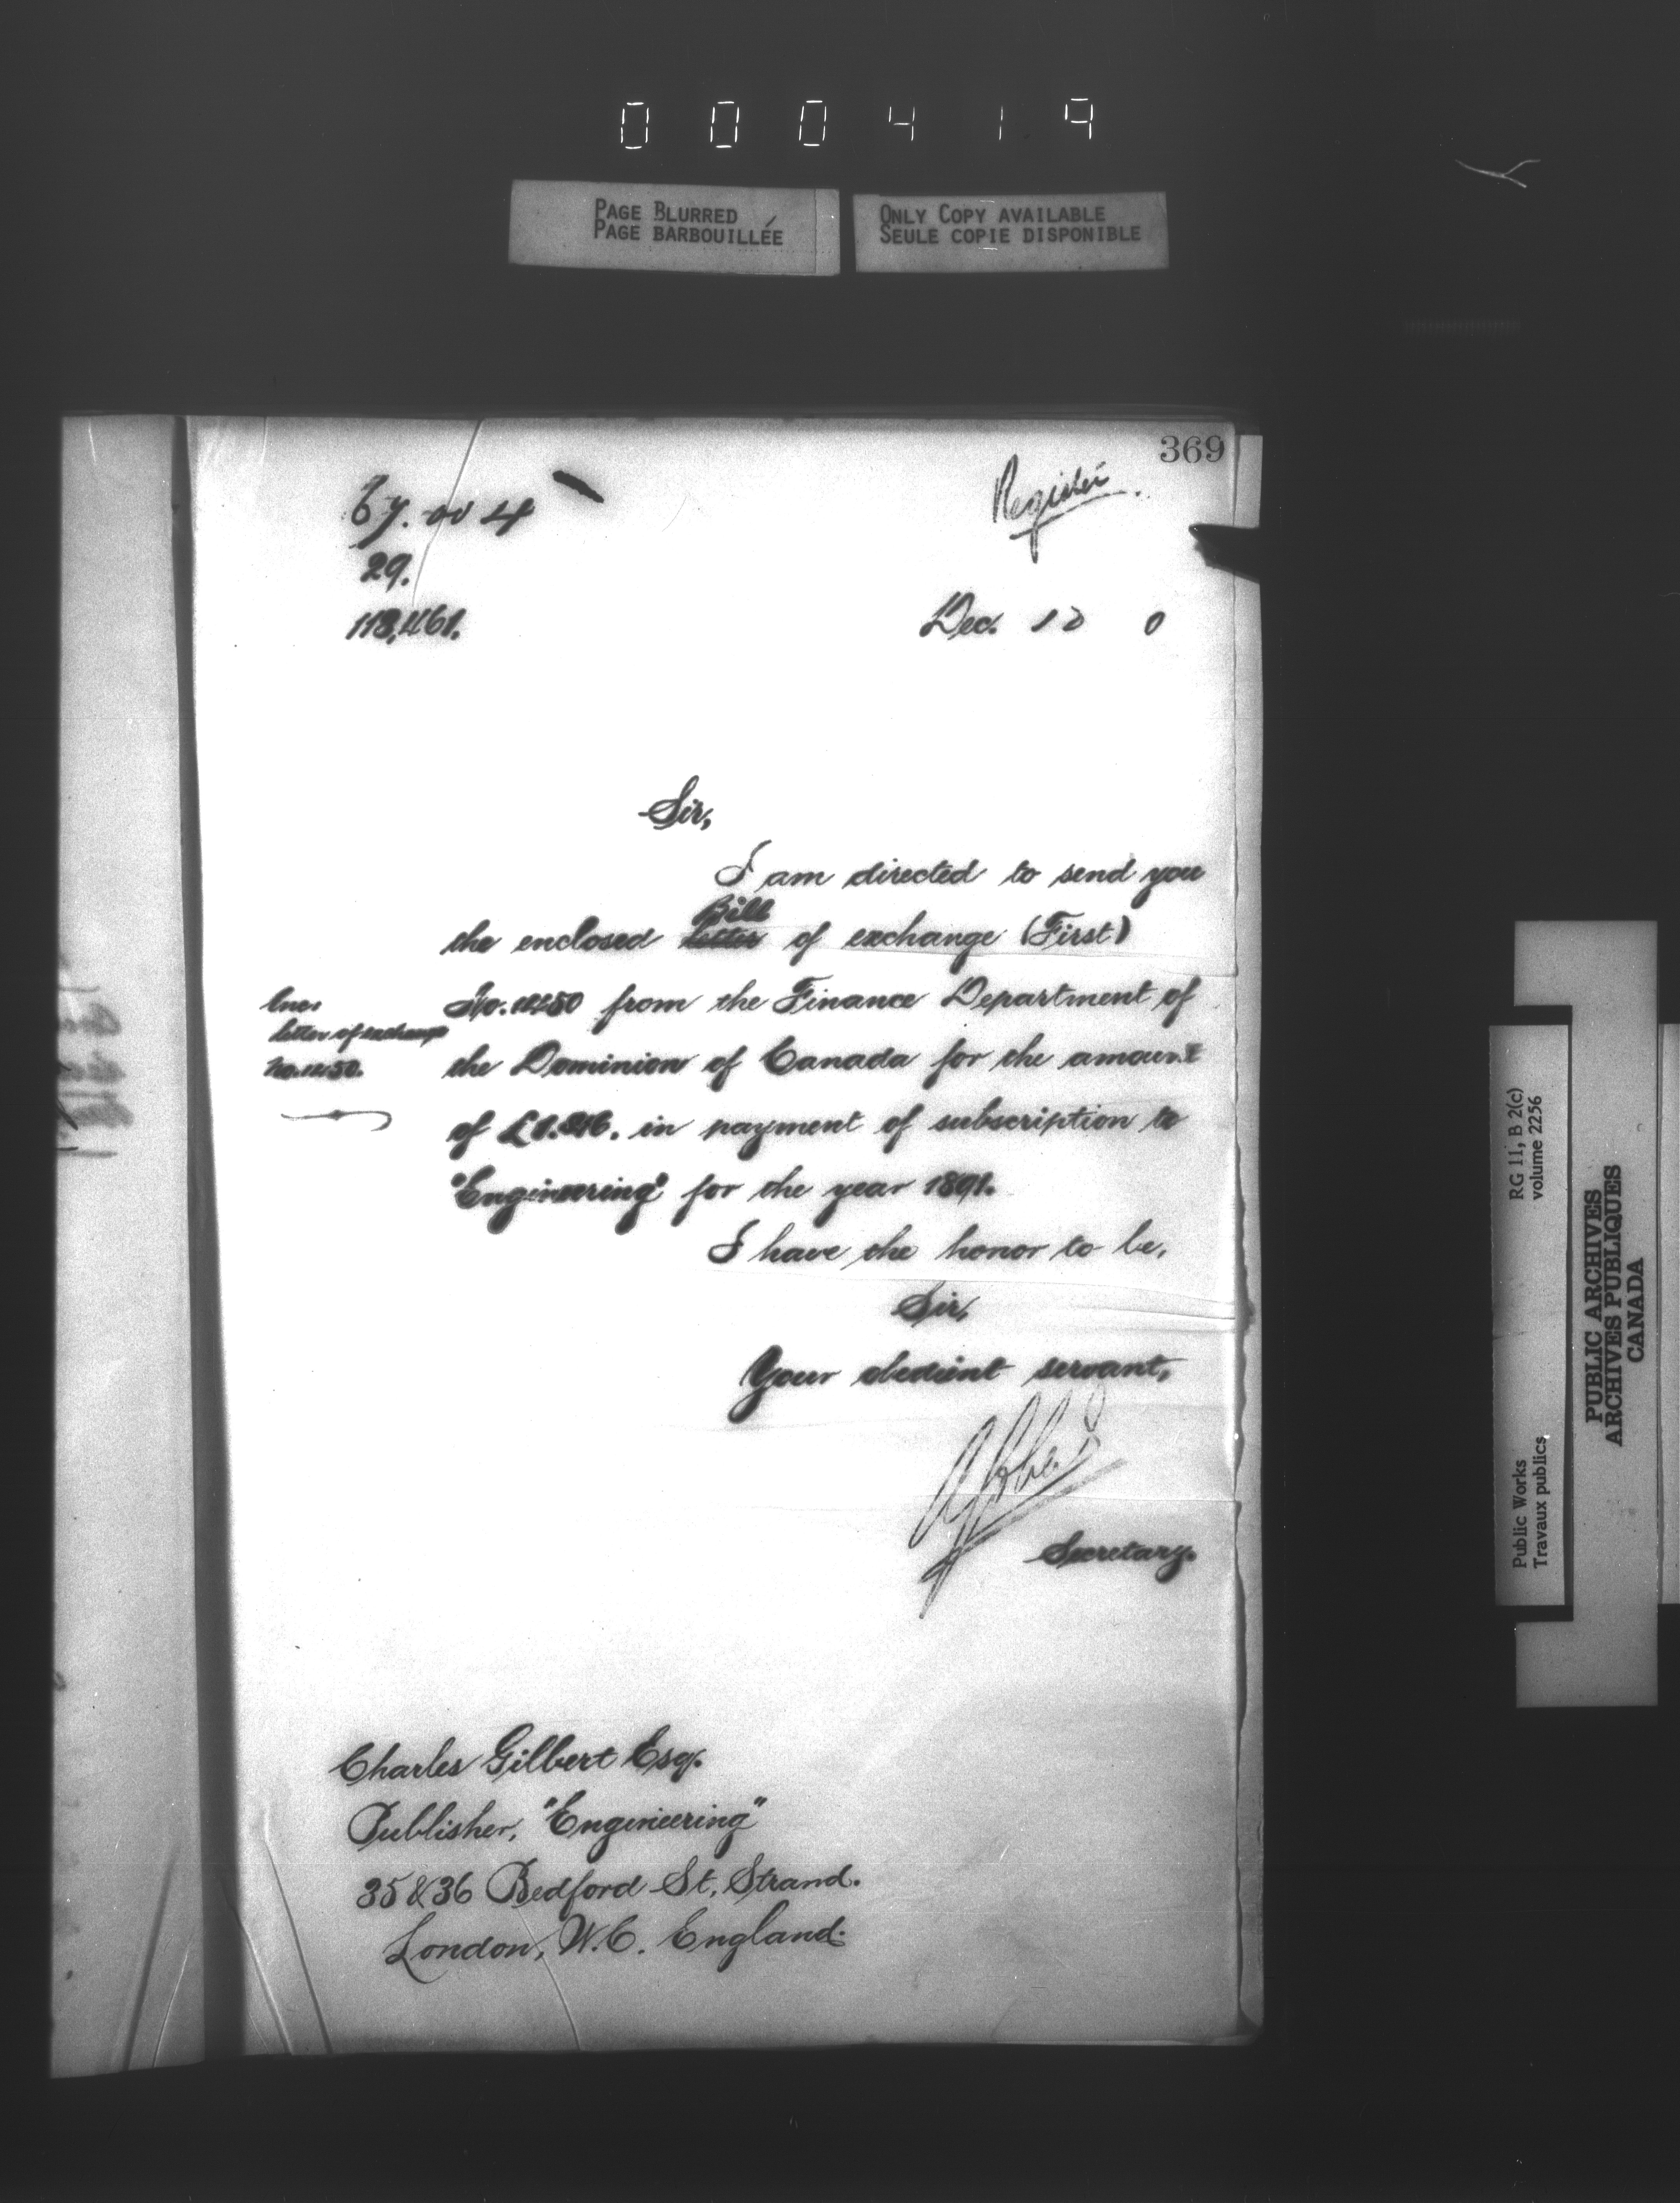 000419
PAGE BLURRED
PAGE BARBOUILLÉE
ONLY COPY AVAILABLE
SEULE COPIE DISPONIBLE
369
Register
29.
113,461.
Dec. 12 0
Sir,
I am directed to send you
Bill
the enclosed letter of exchange (First)
from the Finance Department of
the Dominion of Canada for the amount
of in payment of subscription to
"Engineering" for the year 1891.
I have the honor to be,
Sir,
Your obedient servant,
Secretary.
letter of exchange
Charles Gilbert Esq.
Publisher, "Engineering"
35 & 36 Bedford St, Strand.
London, W.C. England.
RG 11, B 2(c)
volume 2256
Public Works
Travaux publics
PUBLIC ARCHIVES
ARCHIVES PUBLIQUES
CANADA